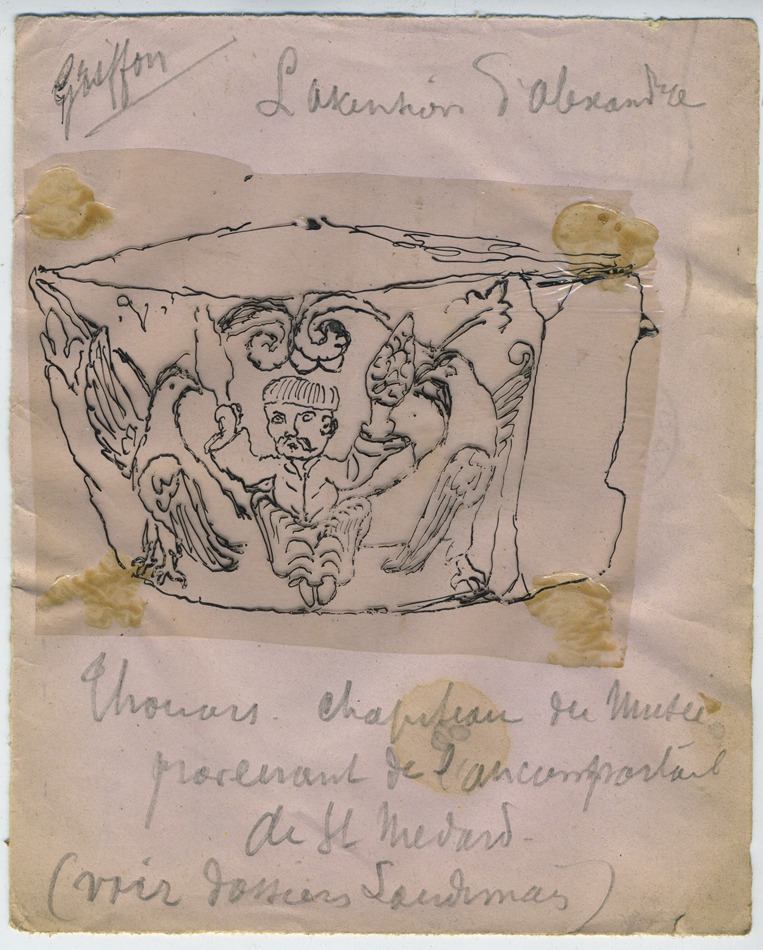 Griffon
L'ascention d'alexandre
Thouars. chapiteau du Musée
provenant de l'ancien portail
de St Medard.
(voir dossiers